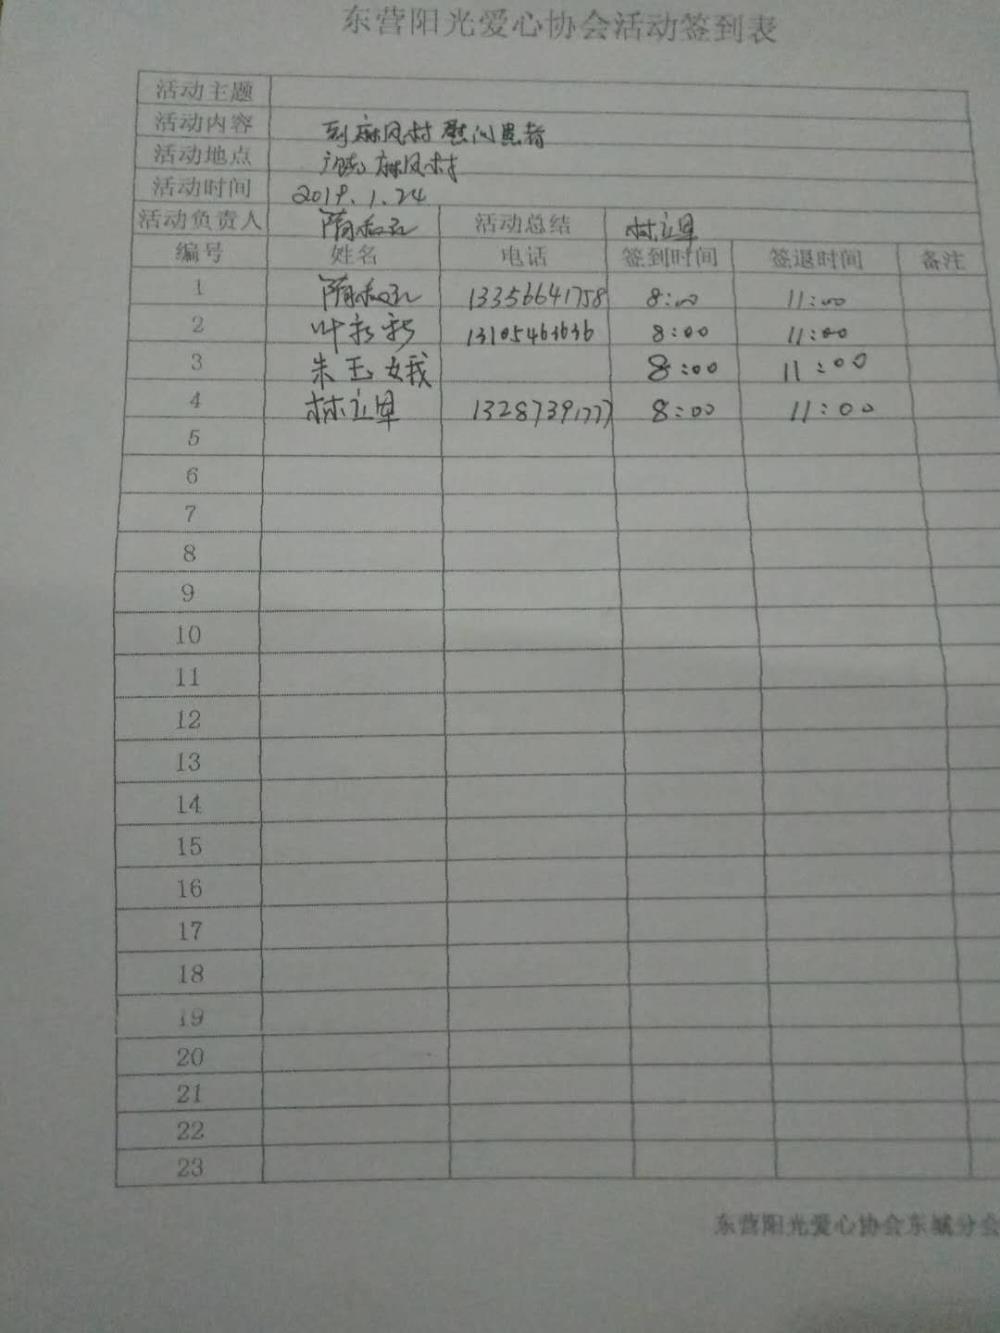 东营阳光爱心协会活动签到表
活动主题
活动内容 到麻风村慰问患者
活动地点 麻风村
活动时间 2019.1.24
活动负责人 隋 活动总结 林立
编号 姓名 电话 签到时间 签退时间 备注
1 隋 13356641758 8:00 11:00
2 叶新新 13105463636 8:00 11:00
3 朱玉娥 8:00 11:00
4 林立 13287391777 8:00 11:00
5
6
7
8
9
10
11
12
13
14
15
16
17
18
19
20
21
22
23
东营阳光爱心协会东城分会